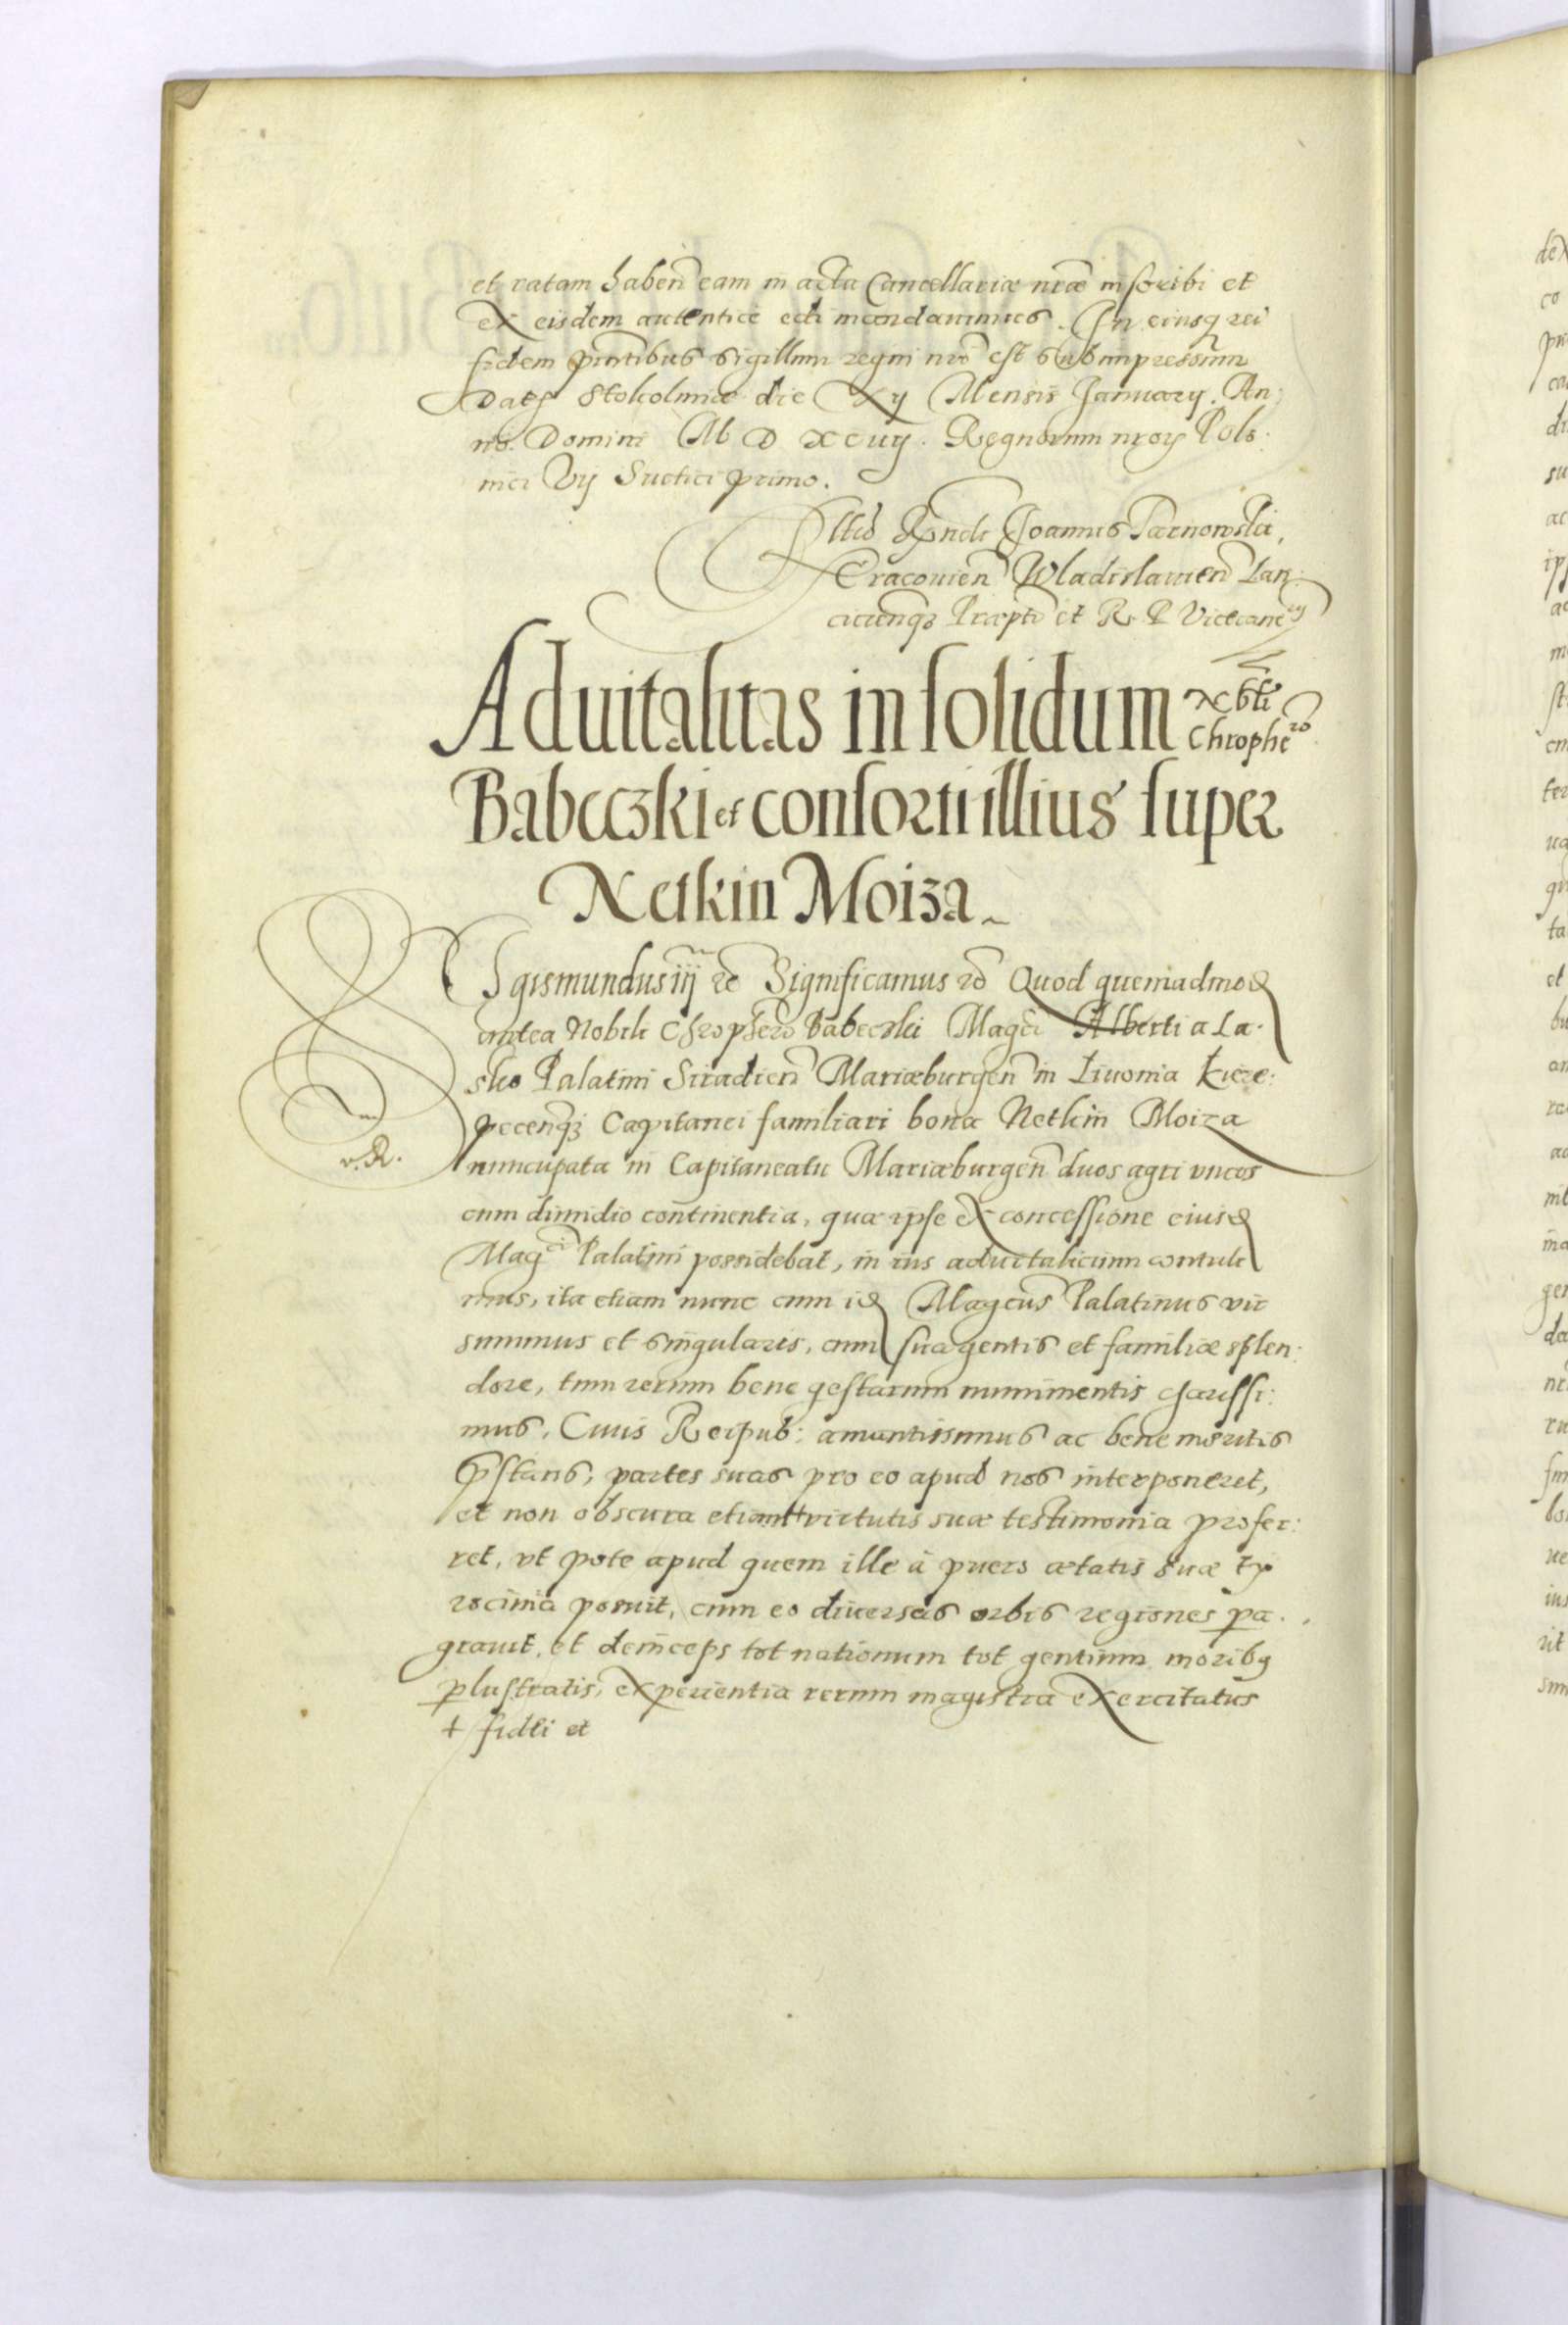 et ratam haben̄ eam in acta Cancellariæ nr̄æ inscribi et
ex eisdem autentice edi mandavimus. In eiusq rei
fidem p̄ntibus sigillum regni nrō est subimpressum
Datꝫ Stokolmiæ die Xij Mensis Januarij. An:
no Domini M D XCiiij. Regnorum nrorꝫ Polo:
nici Vij Suetici primo.
Joannis Tarnowski,
Cracovien̄ Wladislavien̄ Lan:
cicienqꝫ Præpti et R. P. Vicecancrij
Aduitalitas in solidum Nobli
Chrophero
Babeczki et consorti illius super
Netkin Moiza
Sigismundus iij rc̄ Significamus rc̄ Quod quemadmođ
antea Nobili Chrophero Babeczki Magci Alberti a La:
sko Palatini Siradien̄ Mariæburgen̄ in Livonia Kieze:
pecenqꝫ Capitanei familiari bona Netkin Moiza
nuncupata in Capitaneatu Mariæburgen̄ duos agri vncos
cum dimidio continentia, quæ ipse ex concessione eiusđ
Magci Palatini possidebat, in ius aduitalicium contuli
mus, ita etiam nunc cum iđ Magcus Palatinus vir
summus et singularis, cum sua gentis et familiæ splen:
dore, tum rerum bene gestarum munimentis charissi:
mus, Civis Reipub: amantissimus ac bene meritis
p̄stans, partes suas pro eo apud nos interponeret,
et non obscura etiam + virtutis suæ testimonia profer:
ret, vt pote apud quem ille à puero ætatis suæ ty
rocinia posuit, cum eo diversas orbis regiones ꝑa.
gravit, et deinceps tot nationum tot gentium moribꝫ
ꝑlustratis, experientia rerum magistra exercitatus
+ fideli et
v. R.